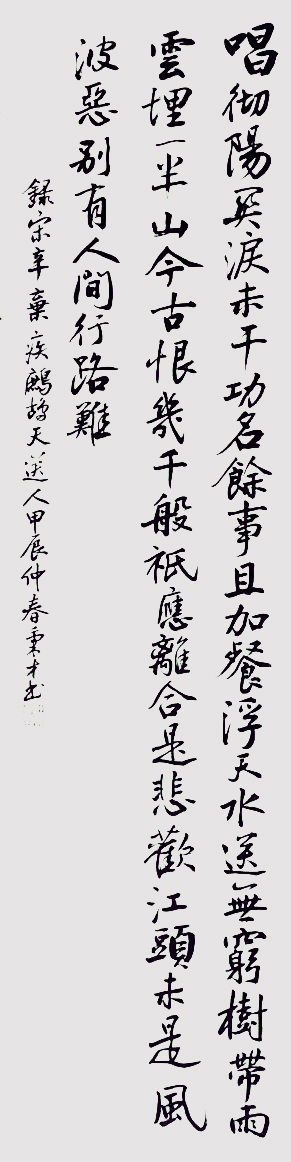 唱彻陽関淚未干功名餘事且加餐浮天水送無窮樹帶雨
雲埋一半山今古恨幾千般衹應離合是悲歡江頭未是風
波惡别有人間行路難
錄宋辛棄疾鷓鴣天送人甲辰仲春秉才书